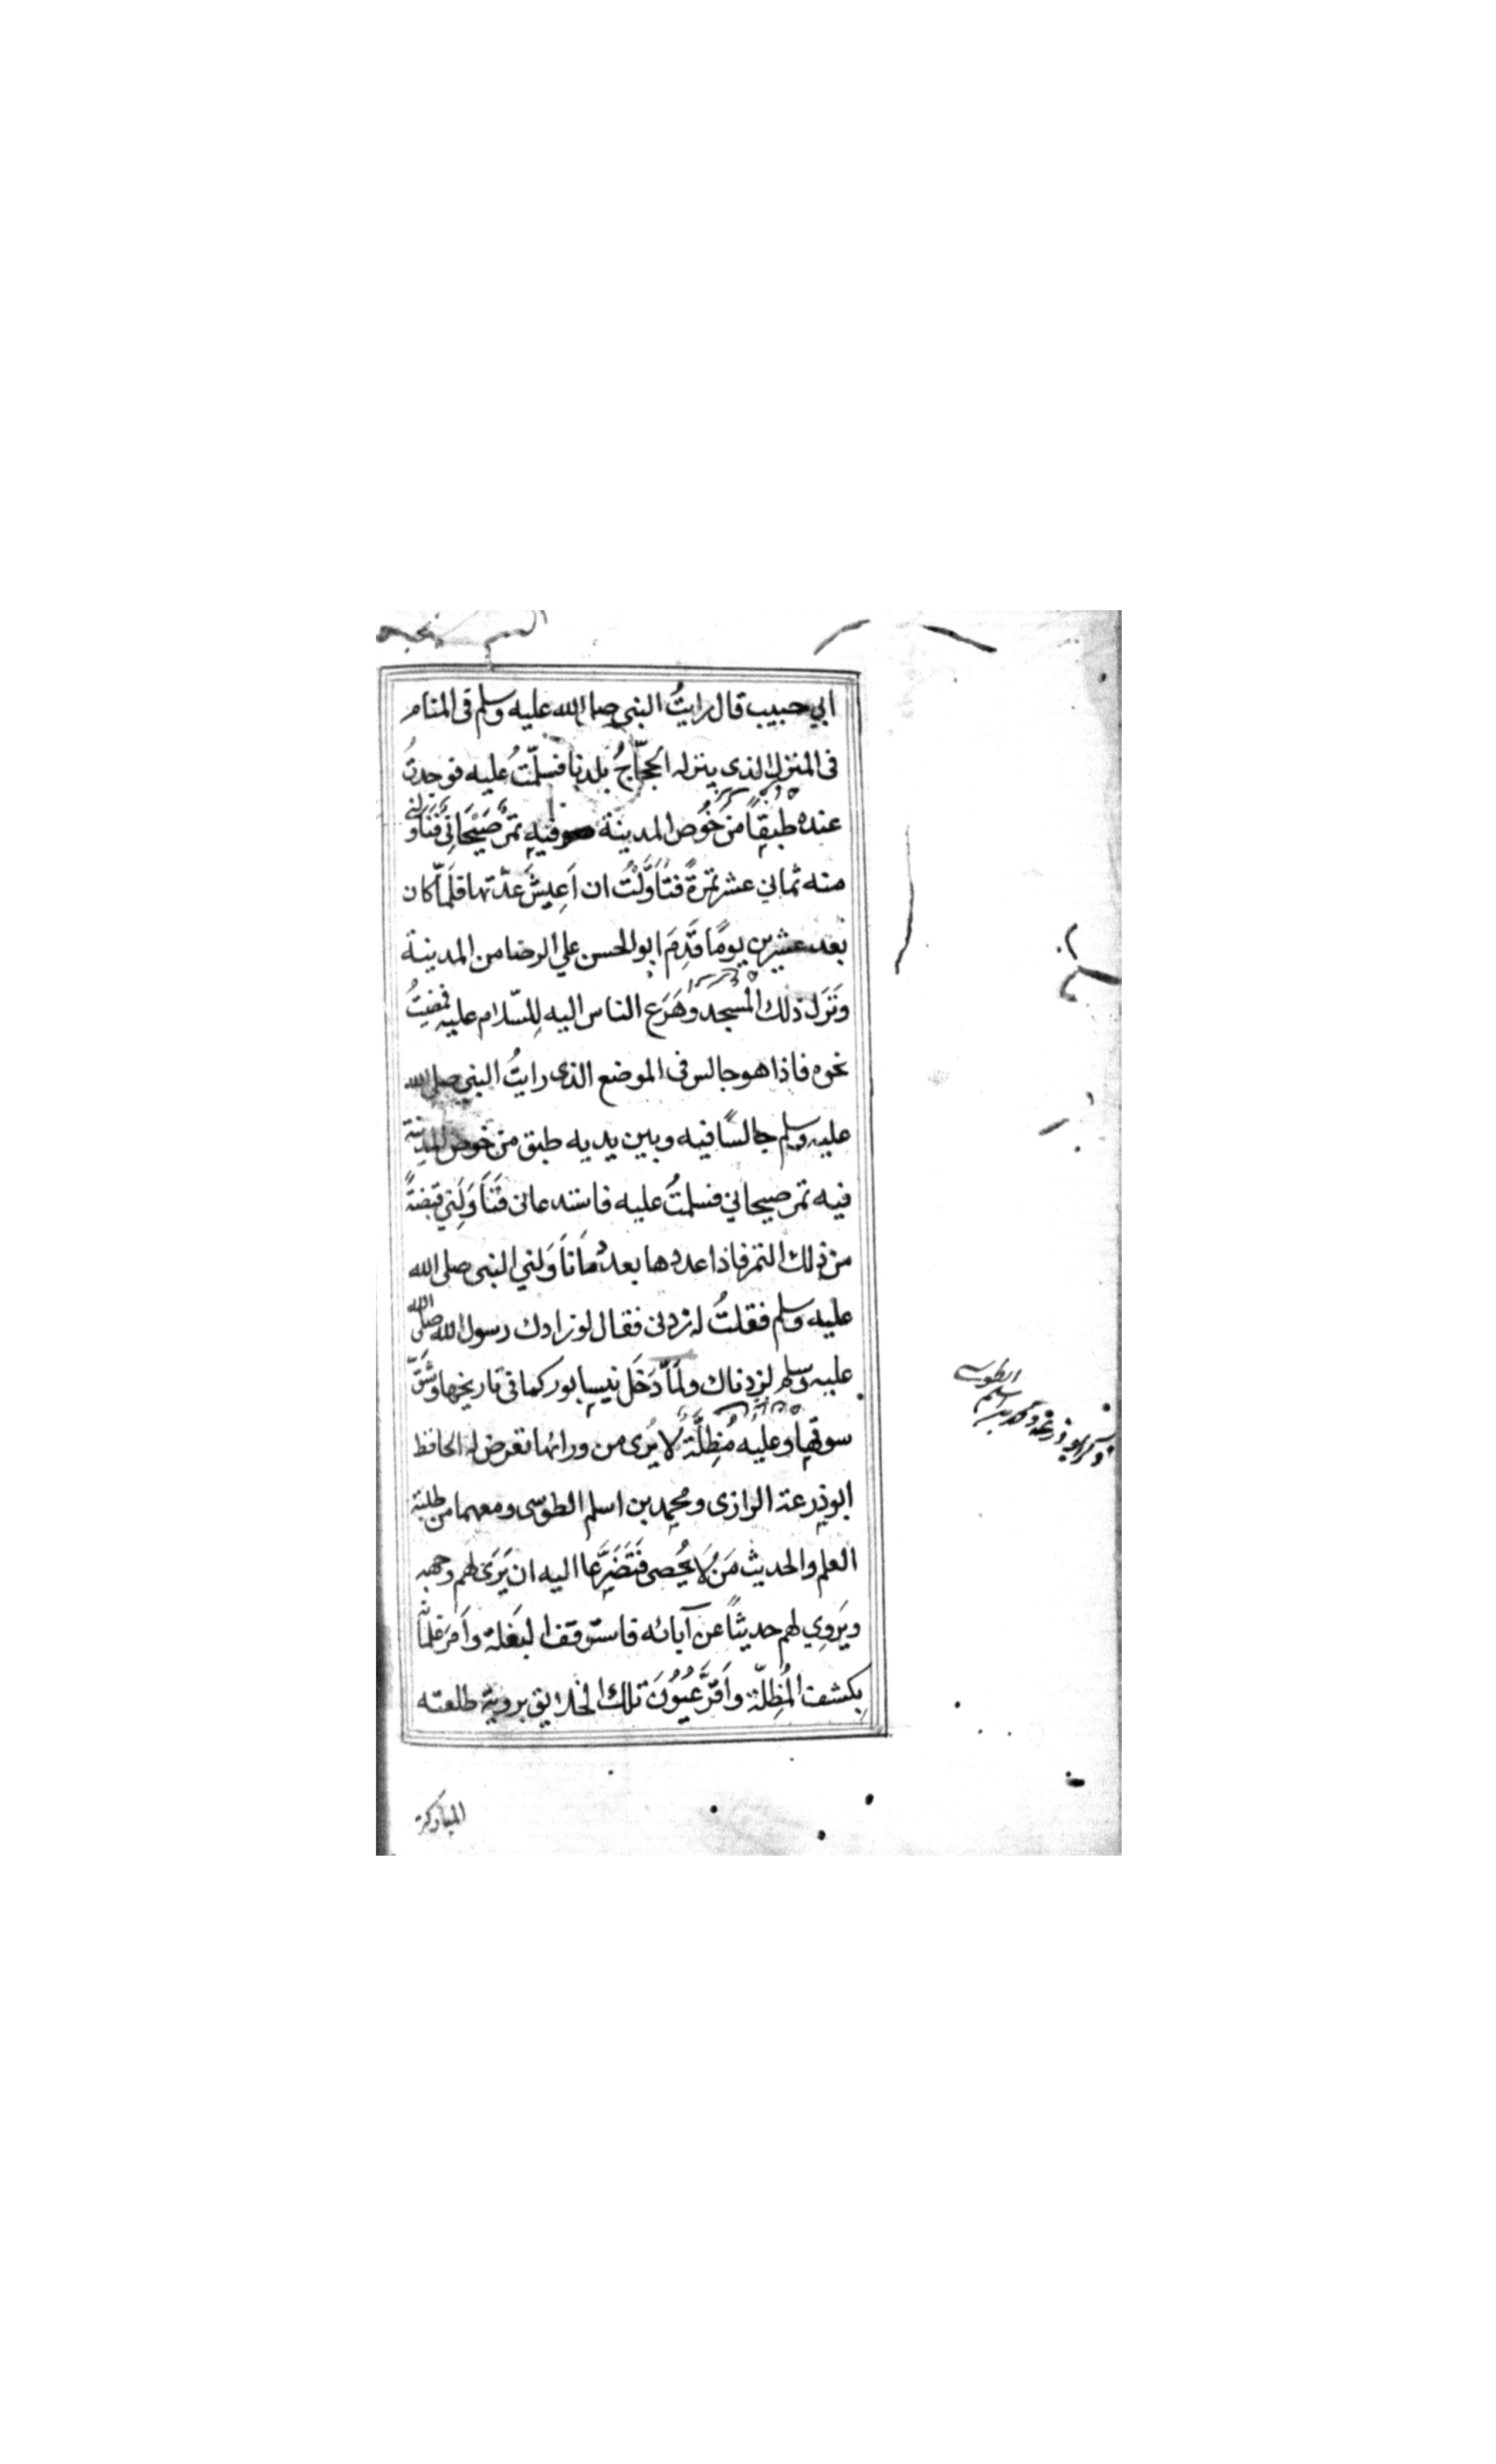 ابي حبيب قال رايتُ النبي صلى الله عليه وسلم في المنام
في المنزل الذي ينزله الحجّاجُ بلدنا فسلّمتُ عليه فوجدتُ
عنده طبقًا من خُوص المدينة وفيه تمرٌ صَيْحَانِيٌّ فَنَاوَلَني
منه ثماني عشر تمرةً فتأوَّلْتُ ان اَعِيشَ عدّتها فلمّا كان
بعد عشرين يومًا قَدِمَ ابو الحسن علي الرضا من المدينة
ونَزَل ذلك المسجد وهَرَع الناس اليه لِلسّلام عليه فمضيتُ
نحوه فاذا هو جالس في الموضع الذي رايتُ النبي صلى الله
عليه وسلم جالسًا فيه وبين يديه طبق من خوص المدينة
فيه تمر صيحاني فسلمتُ عليه فاستدعاني فَنَاوَلَني قبضةً
من ذلك التمر فاذا عددها بعدد ما نَاوَلني النبي صلى الله
عليه وسلم فقلتُ له زدني فقال لو زادك رسول الله صلى الله
عليه وسلم لزدناك ولَمّا دَخَل نيسابور كما في تاريخها وشَقَّ
سوقها وعليه مُظِلَّةٌ لا يُرى من ورائها تعرض له الحافظ
ابو ذرعة الرازي ومحمد بن اسلم الطوسي ومعهما من طلبة
العلم والحديث مَن لا يُحصى فَتَضَرَّعا اليه ان يَرَى لهم وجهه
ويَروِي لهم حديثًا عن آبائه فاستوقف البَغلة واَمَر غلمانه
بِكشف المُظِلّة واَقَرَّ عُيُوُنَ تلك الخلايق بروية طلعته
المباركة
اسلم الطوسي